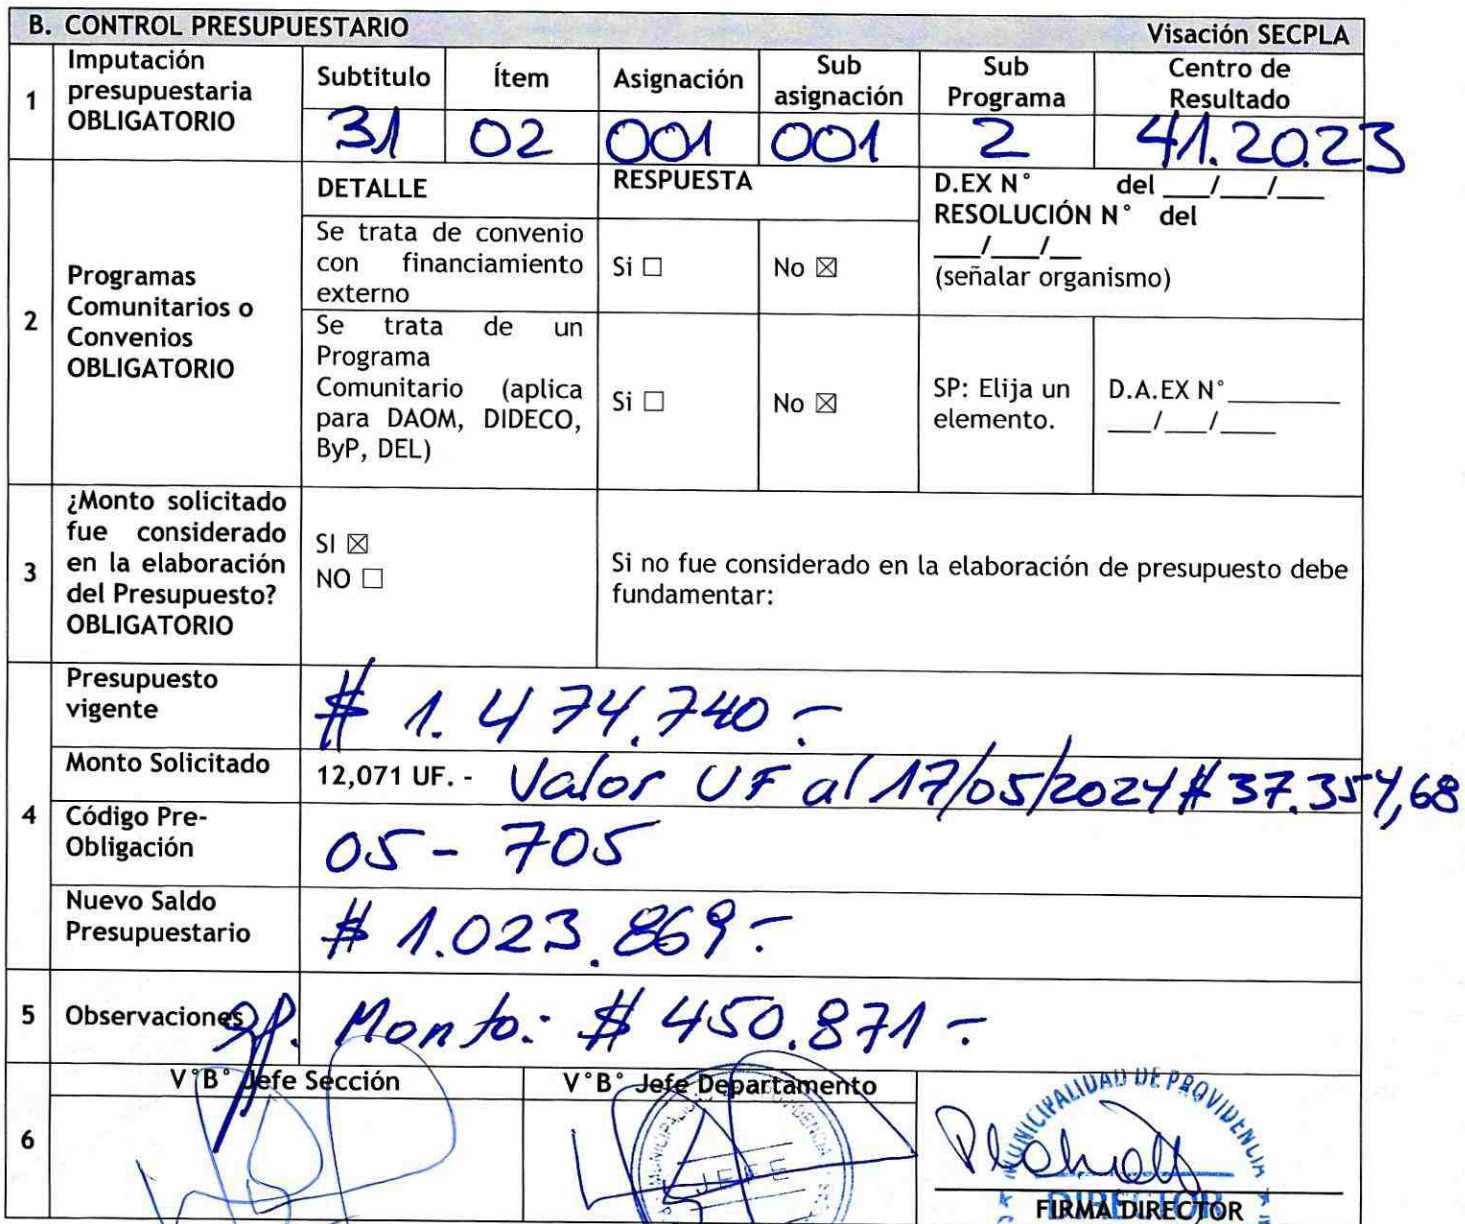 B. CONTROL PRESUPUESTARIO Visación SECPLA
1
Imputación
presupuestaria
OBLIGATORIO
Subtitulo
Ítem
Asignación
Sub
asignación
Sub
Programa
Centro de
Resultado
31 02 001 001 2 41.2023
2
Programas
Comunitarios o
Convenios
OBLIGATORIO
DETALLE
RESPUESTA
D.EX N° del ___/___/___
RESOLUCIÓN N° del
___/___/__
(señalar organismo)
Se trata de convenio
con financiamiento
externo
Si ☐
No ☒
Se trata de un
Programa
Comunitario (aplica
para DAOM, DIDECO,
ByP, DEL)
Si ☐
No ☒
SP: Elija un
elemento.
D.A.EX N° ________
___/___/____
3
¿Monto solicitado
fue considerado
en la elaboración
del Presupuesto?
OBLIGATORIO
SI ☒
NO ☐
Si no fue considerado en la elaboración de presupuesto debe
fundamentar:
4
Presupuesto
vigente
$ 1.474.740.-
Monto Solicitado
12,071 UF. - Valor UF al 17/05/2024 $ 37.354,68
Código Pre-
Obligación
05 - 705
Nuevo Saldo
Presupuestario
$ 1.023.869.-
5
Observaciones
Monto: $ 450.871.-
6
V°B° Jefe Sección
V°B° Jefe Departamento
JEFE
MUNICIPALIDAD DE PROVIDENCIA
DIRECTOR
FIRMA DIRECTOR